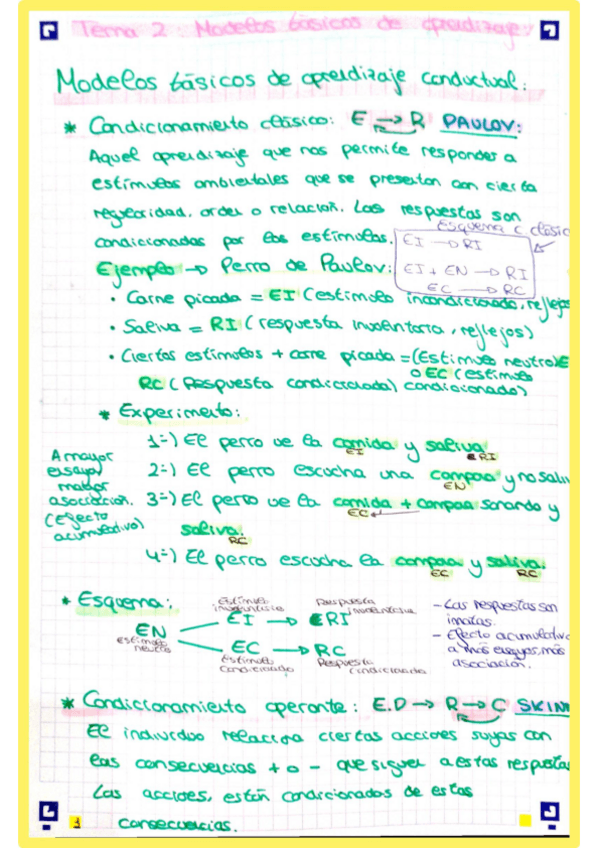 Tema 2: Modelos básicos de aprendizaje.
Modelos básicos de aprendizaje conductual:
* Condicionamiento clásico: E → R PAULOV:
Aquel aprendizaje que nos permite responder a
estímulos ambientales que se presentan con cierta
regularidad, orden o relación. Las respuestas son
condicionadas por los estímulos.
Esquema c. clásic
EI → RI
EI + EN → RI
EC → RC
Ejemplo → Perro de Paulov:
• Carne picada = EI (estímulo incondicionado, reflejos
• Saliva = RI (respuesta involuntaria, reflejos)
• Ciertos estímulos + carne picada = (Estímulo neutro) E
o EC (estímulo
RC (Respuesta condicionada) condicionado)
* Experimento:
1º) El perro ve la comida y saliva
EI RI
2º) El perro escucha una campana y no saliv
EN
3º) El perro ve la comida + campana sonando y
EC
saliva.
RC
4º) El perro escucha la campana y saliva.
EC RC
A mayor
ensayo
mayor
asociación.
(efecto
acumulativo)
* Esquema:
Estímulo
Respuesta
involuntaria
EI → RI
EN
estímulo
neutro
EC → RC
Estímulo
Condicionado
Respuesta
Condicionada
- Las respuestas son
innatas.
- Efecto acumulativo
a más ensayos, más
asociación.
* Condicionamiento operante: E.D → R → C SKINN
El individuo relaciona ciertas acciones suyas con
las consecuencias + o - que siguen a estas respuestas
Las acciones, están condicionadas de estas
consecuencias.
1